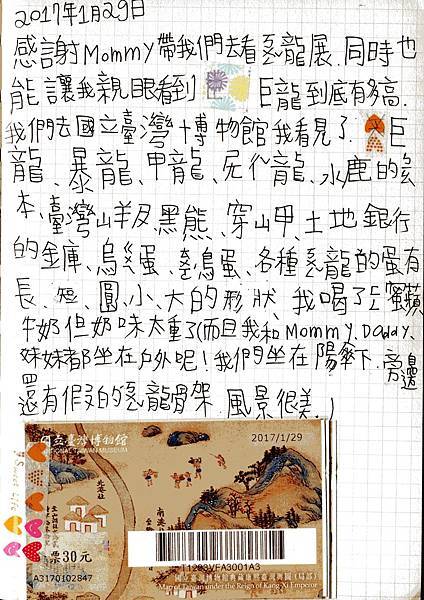 2017年1月29日
感謝Mommy帶我們去看恐龍展.同時也
能讓我親眼看到 巨龍到底有多高.
我們去國立臺灣博物館我看見了 巨
龍、暴龍、甲龍、尼介龍、水鹿的
本、臺灣山羊及黑熊、穿山甲、土地銀行
的金庫、鳥蛋、各種恐龍的蛋有
長、短、圓、小、大的形狀、我喝了
牛奶但奶味太重了(而且我和Mommy、Daddy、
妹妹都坐在户外呢!我們坐在陽傘下.旁邊
還有作文的恐龍骨架.風景很美.)
國立臺灣博物館
NATIONAL TAIWAN MUSEUM
2017/1/29
北港社
南港社
Sweet Life
票30元
T1203VFA3001A3
A3170102847
國立臺灣博物館典藏康熙臺灣輿圖(局部)
Map of Taiwan under the Reign of Kang-Xi Emperor